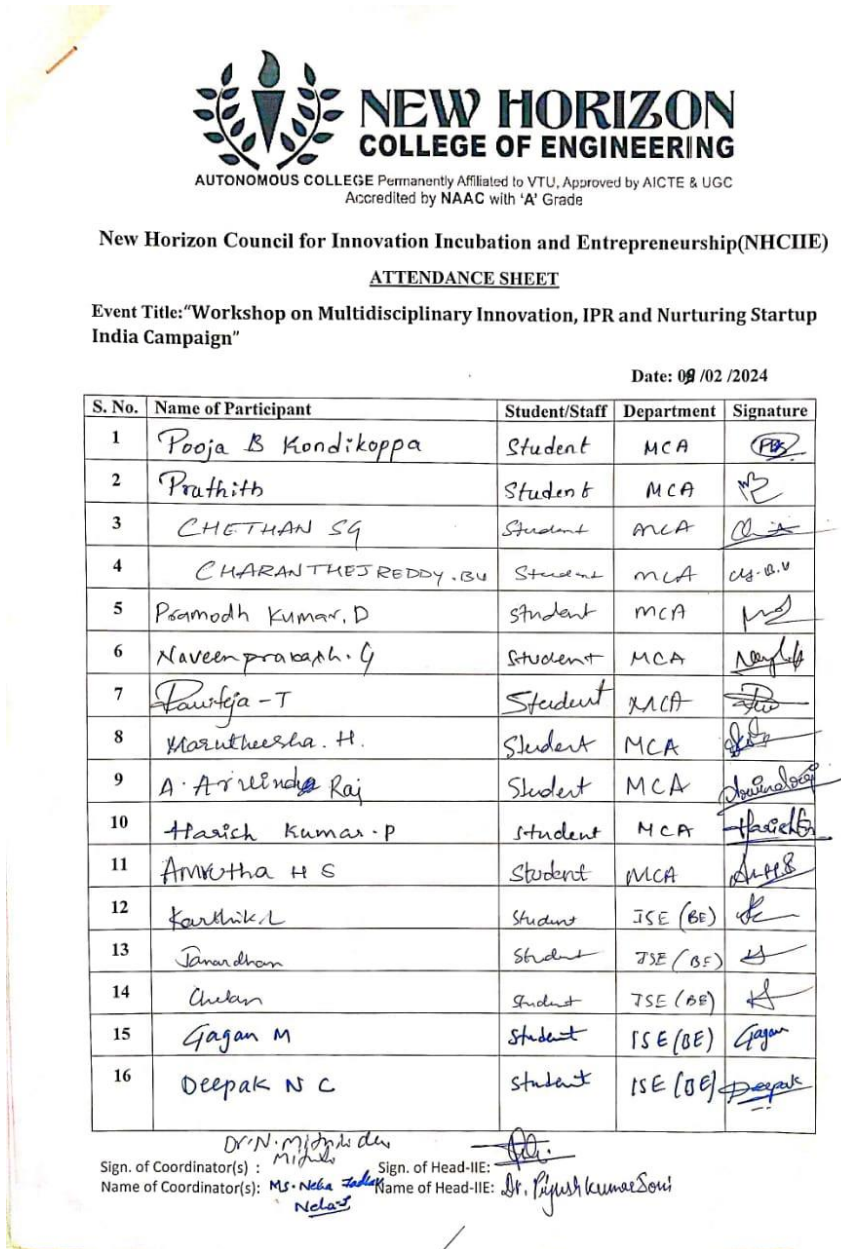 NEW HORIZON
COLLEGE OF ENGINEERING
AUTONOMOUS COLLEGE Permanently Affiliated to VTU, Approved by AICTE & UGC
Accredited by NAAC with 'A' Grade
New Horizon Council for Innovation Incubation and Entrepreneurship(NHCIIE)
ATTENDANCE SHEET
Event Title:"Workshop on Multidisciplinary Innovation, IPR and Nurturing Startup
India Campaign"
Date: /02 /2024
S. No. Name of Participant Student/Staff Department Signature
1 Pooja B Kondikoppa Student MCA PBK
2 Prathith Student MCA
3 CHETHAN SG Student MCA
4 CHARANTHEJREDDY.BV Student MCA
5 Pramodh Kumar.D Student MCA
6 Naveenprakash.G Student MCA
7 Student MCA
8 Marutheesha.H. Student MCA
9 A. Arvinda Raj Student MCA
10 Harish Kumar.P Student MCA
11 Amrutha H S Student MCA
12 Karthik.L Student ISE (BE)
13 Janardhan Student ISE (BE)
14 Student ISE (BE)
15 Gagan M Student ISE (BE) Gagan
16 Deepak N C Student ISE (BE) Deepak
Dr.N.
Sign. of Coordinator(s) : Sign. of Head-IIE:
Name of Coordinator(s): Ms. Neha Name of Head-IIE: Dr. Piyush Kumar Soni
Neha